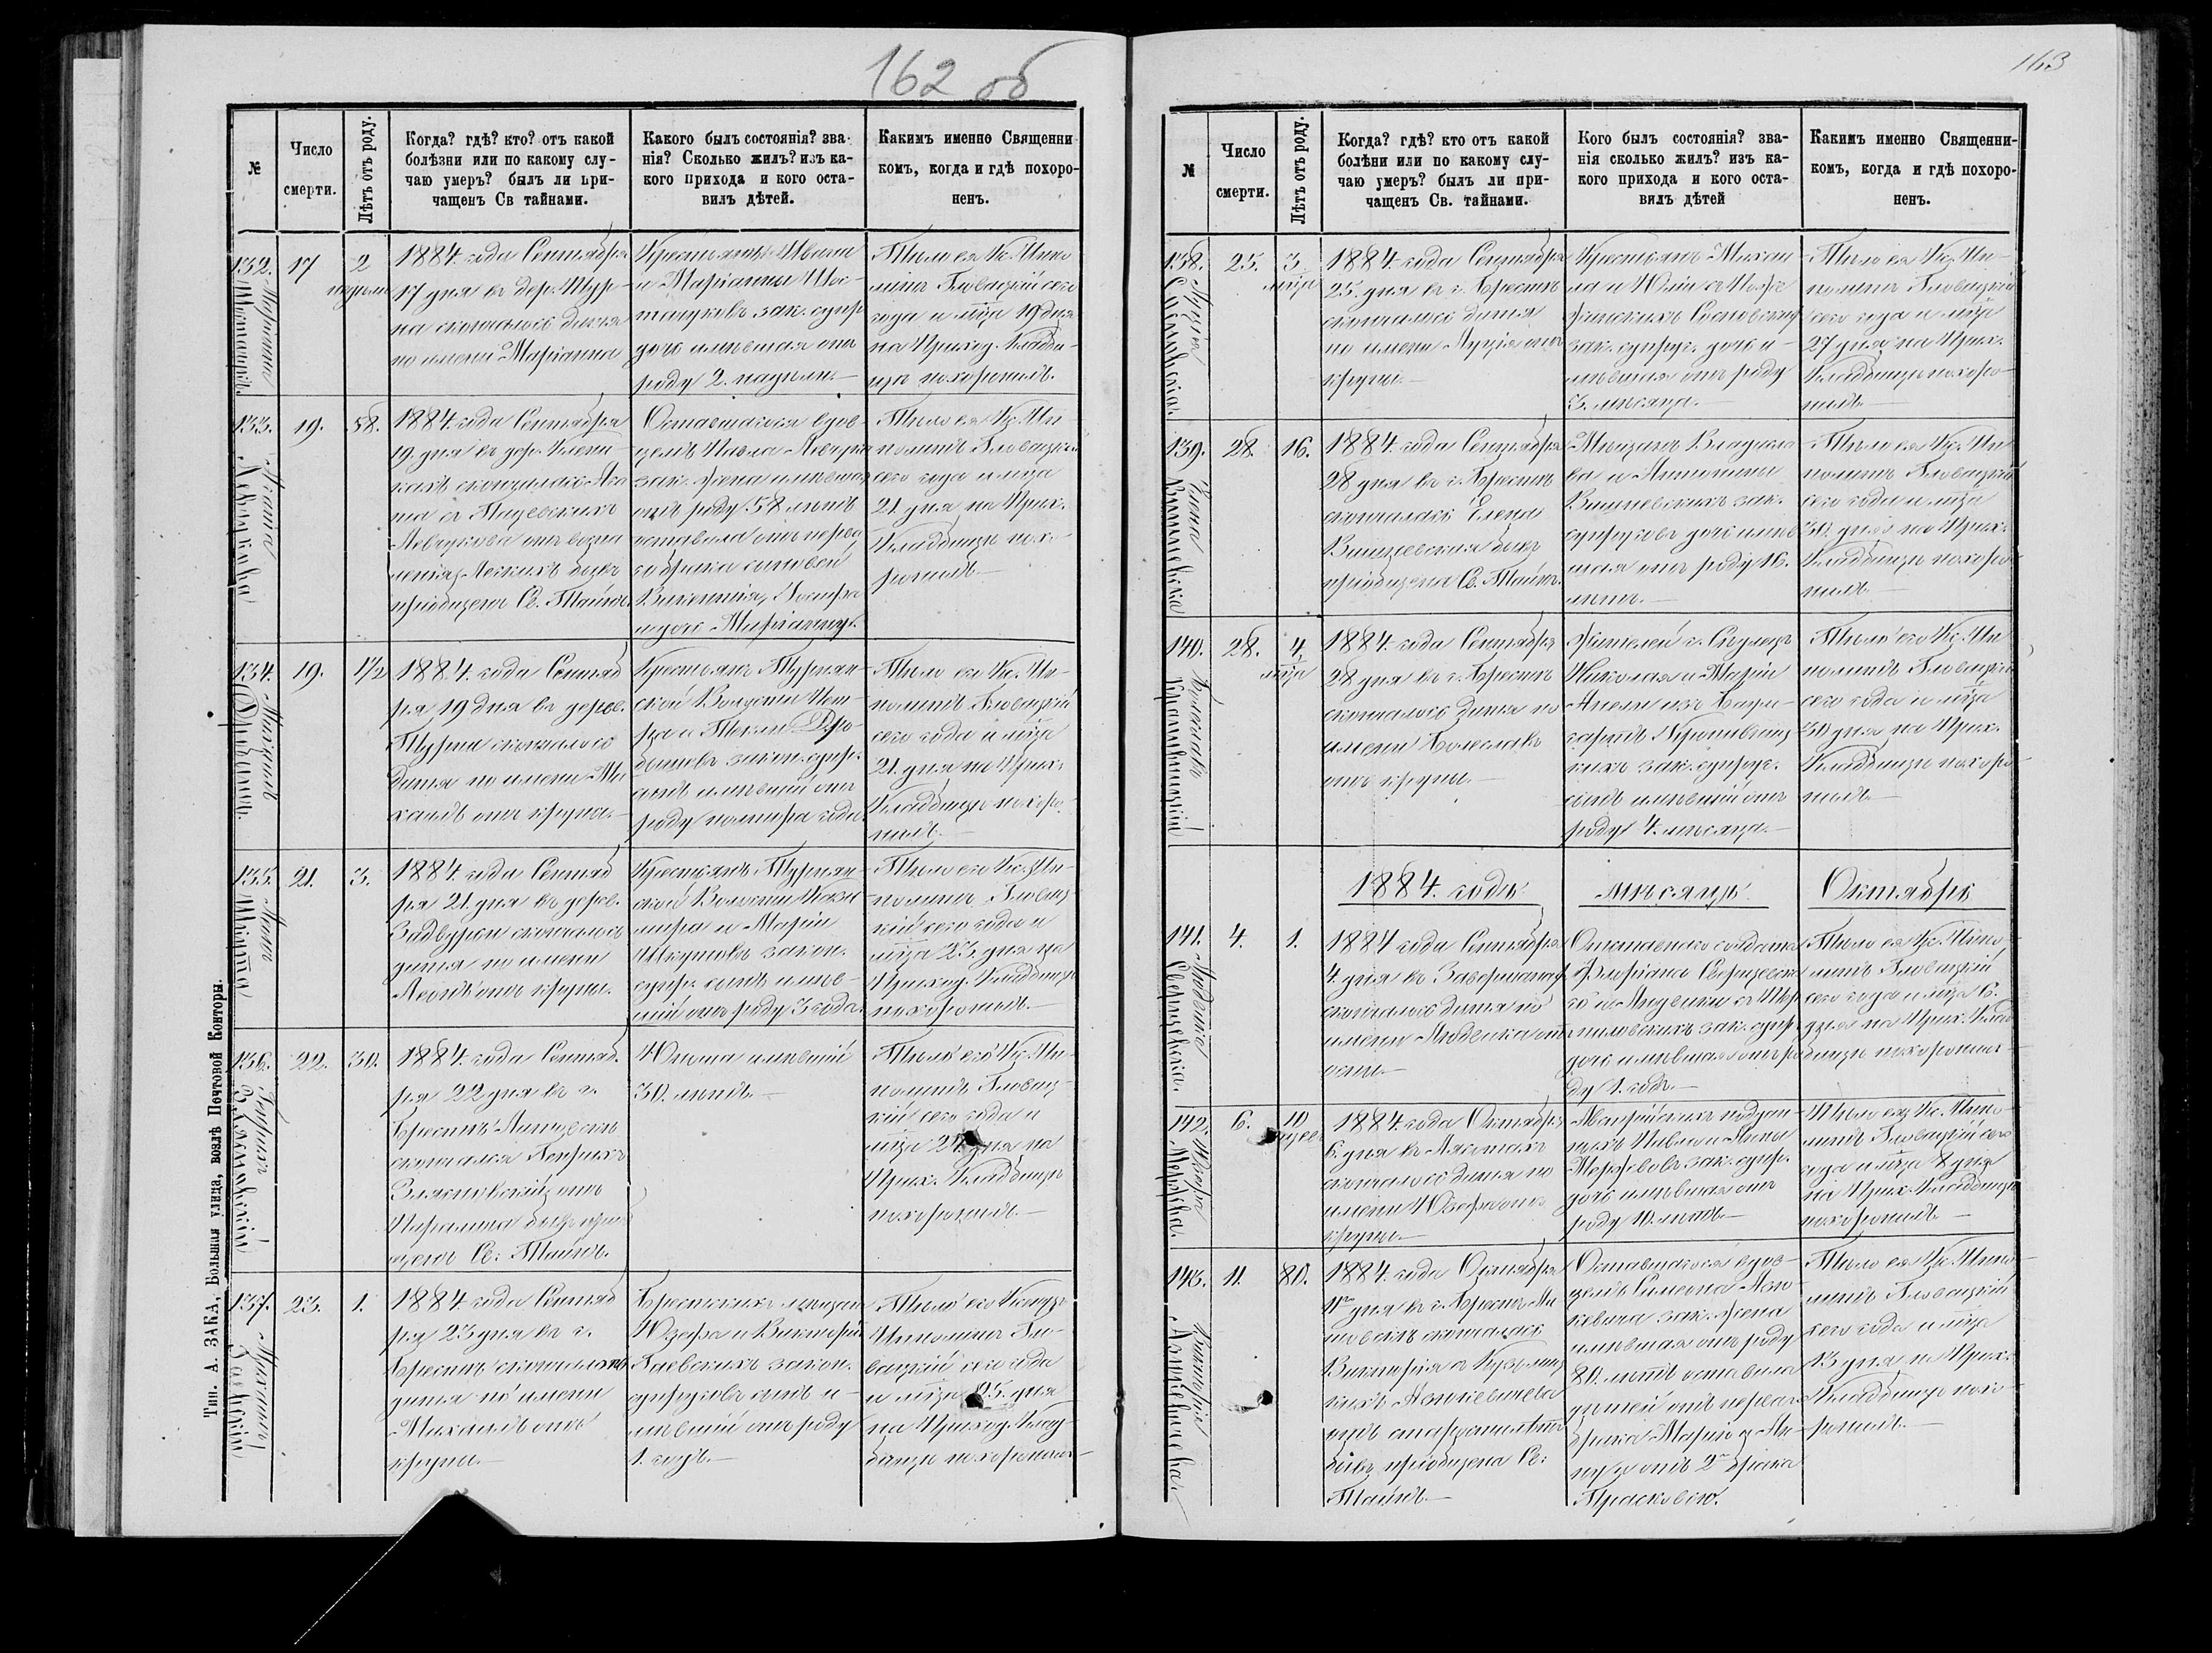 162 об
№
Число
смерти.
Лѣтъ отъ роду.
Когда? гдѣ? кто? отъ какой
болѣзни или по какому слу-
чаю умеръ? былъ ли при-
чащенъ Св тайнами.
Какого былъ состоянія? зва-
нія? Сколько жилъ? изъ ка-
кого прихода и кого оста-
вилъ дѣтей.
Какимъ именно Священни
комъ, когда и гдѣ похоро-
ненъ.
132.
17
2
недѣли
1884. года Сентября
17 дня въ дер.
на скончалось дитя
по имени Маріанна
Крестьянъ Ивана
и Маріанны
зак. супр
дочь имѣвшая отъ
роду 2. недѣли.
Тѣло ея Кс. Ипо
литъ Гловацкій сего
года и мца 19 дня
на Приход. Кладби-
щѣ похоронилъ.
133.
Агата
Левчукова
19.
58.
1884. года Сентября
19. дня въ дер.
скончалась Ага
та съ
Левчукова отъ воспа
ленія Легкихъ бывъ
пріобщена Св. Тайнъ.
Оставшагося вдов-
цемъ Павла Левчука
зак. жена имѣвшая
отъ роду 58 лѣтъ
оставила отъ перва
го брака сыновей
Викентія, Іосифа
и дочь Маріанну.
Тѣло ея Кс. Ип-
политъ Гловацкій
сего года и мца
21. дня на Прих.
Кладбищѣ похо-
ронилъ.
134.
Михаилъ
19.
1½
1884. года Сентяб
ря 19 дня въ дерев.
скончалось
дитя по имени Ми
хаилъ отъ крупа.
Крестьянъ Турнян-
ской Волости Пет-
ра и Теклы
закон. супр.
сынъ имѣвшій отъ
роду полтора года
Тѣло его Кс. Ип-
политъ Гловацкій
сего года и мца
21. дня на Прих.
Кладбищѣ похоро-
нилъ.
135.
Леонъ
21.
3.
1884. года Сентяб
ря 21. дня въ дерев.
Задворцы скончалось
дитя по имени
Леонъ отъ крупы.
Крестьянъ Турнян-
ской Волости Кази
мира и Маріи
закон.
супр. сынъ имѣв-
шій отъ роду 3 года.
Тѣло его Кс. Ип-
политъ Гловац-
кій сего года и
мца 23. дня на
Приход. Кладбищѣ
похоронилъ.
136.
Генрихъ
22.
30.
1884. года Сентяб.
ря 22 дня въ г.
Брестъ Литовскъ
скончался Генрихъ
отъ
Паралича бывъ прио
щенъ Св. Тайнъ.
Юноша имѣвшій
30. лѣтъ.
Тѣло его Кс. Ип-
политъ Гловац-
кій сего года и
мца 24 дня на
Прих. Кладбищѣ
похоронилъ.
137.
Михаилъ
Гаевскій
23.
1.
1884. года Сентяб
ря 23 дня въ г.
Брестѣ скончалось
дитя по имени
Михаилъ отъ
крупы.
Брестскихъ мѣщанъ
Юзефа и Викторіи
Гаевскихъ закон.
супруговъ сынъ и-
мѣвшій отъ роду
1. годъ.
Тѣло его Ксендзъ
Иполитъ Гло-
вацкій сего года
и мца 25. дня
на Приход. Клад-
бищѣ похоронилъ
Тип. А. ЗЗАКА, Большая улица, возлѣ Почтовой Конторы.
163
№
Число
смерти.
Лѣтъ отъ роду.
Когда? гдѣ? кто отъ какой
болѣни или по какому слу-
чаю умеръ? былъ ли при-
чащенъ Св. тайнами.
Кого былъ состоянія? зва-
нія сколько жилъ? изъ ка-
кого прихода и кого оста-
вилъ дѣтей
Какимъ именно Священни-
комъ, когда и гдѣ похоро-
ненъ.
138.
Луція
25.
3.
мца
1884. года Сентября
25. дня въ г. Брестѣ
скончалось дитя
по имени Луція отъ
крупы.
Крестьянъ Михаи-
ла и Юліи съ
зак. супруг. дочь и-
мѣвшая отъ роду
3. мѣсяца.
Тѣло ея Кс. Ип-
политъ Гловацкій
сего года и мца
27 дня на Прих.
Кладбищѣ похоро-
нилъ.
139.
Елена
Вишневская
28.
16.
1884. года Сентября
28 дня въ г. Брестѣ
скончалась Елена
Вишневская бывъ
пріобщена Св. Тайнъ.
Мѣщанъ Владисла
ва и Антонины
Вишневскихъ зак.
супруговъ дочь имѣв
шая отъ роду 16.
лѣтъ.
Тѣло ея Кс. Ип
политъ Гловацкій
сего года и мца
30. дня на Прих.
Кладбищѣ похоро-
нилъ.
140.
Болеславъ
28.
4.
мца
1884. года Сентября
28 дня въ г. Брестѣ
скончалось дитя по
имени Болеславъ
отъ крупы.
Жителей г.
Николая и Маріи
зак. супруг.
сынъ имѣвшій отъ
роду 4. мѣсяца.
Тѣло его Кс. Ип
политъ Гловацкій
сего года и мца
30 дня на Прих.
Кладбищѣ похоро-
нилъ.
1884. годъ
мѣсяцъ
Октябрь
141.
4.
1.
1884 года Сентября
4. дня въ
скончалось дитя по
имени Людвика отъ
оспы.
Отставнаго солдата
Флоріана
зак. супр.
дочь имѣвшая отъ ро
ду 1. годъ.
Тѣло ея Кс. Иппо
литъ Гловацкій
сего года и мца 6.
дня на Прих. Клад
бищѣ похоронилъ
142.
Юзефа
6.
10
1884. года Октября
6. дня въ
скончалось дитя по
имени Юзефа отъ
крупы.
Австрійскихъ поддан-
ныхъ Павла и Анны
зак. супр.
дочь имѣвшая отъ
роду 10.
Тѣло ея Кс. Иппо-
литъ Гловацкій сего
года и мца 8 дня
на Прих. Кладбищѣ
похоронилъ.
143.
Викторія
11.
80.
1884. года Октября
11го дня въ г. Брестъ Ли
товскъ скончалась
Викторія съ
отъ старости лѣтъ
бывъ пріобщена Св:
Тайнъ.
Оставшагося вдов-
цемъ Симеона
зак. жена
имѣвшая отъ роду
80. лѣтъ оставила
дѣтей отъ перваго
брака Марію и Ан-
ну и отъ 2го брака
Прасковью.
Тѣло ея Кс. Иппо-
литъ Гловацкій
сего года и мца
13 дня на Прих.
Кладбищѣ похо-
ронилъ.